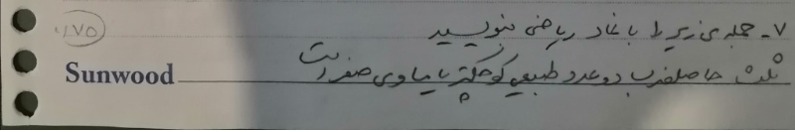 ۷- جمله ی زیر را با نماد ریاضی بنویسید
۰/۷۵
ثلث حاصلضرب دو عدد طبیعی کوچکتر یا مساوی صفر است
Sunwood